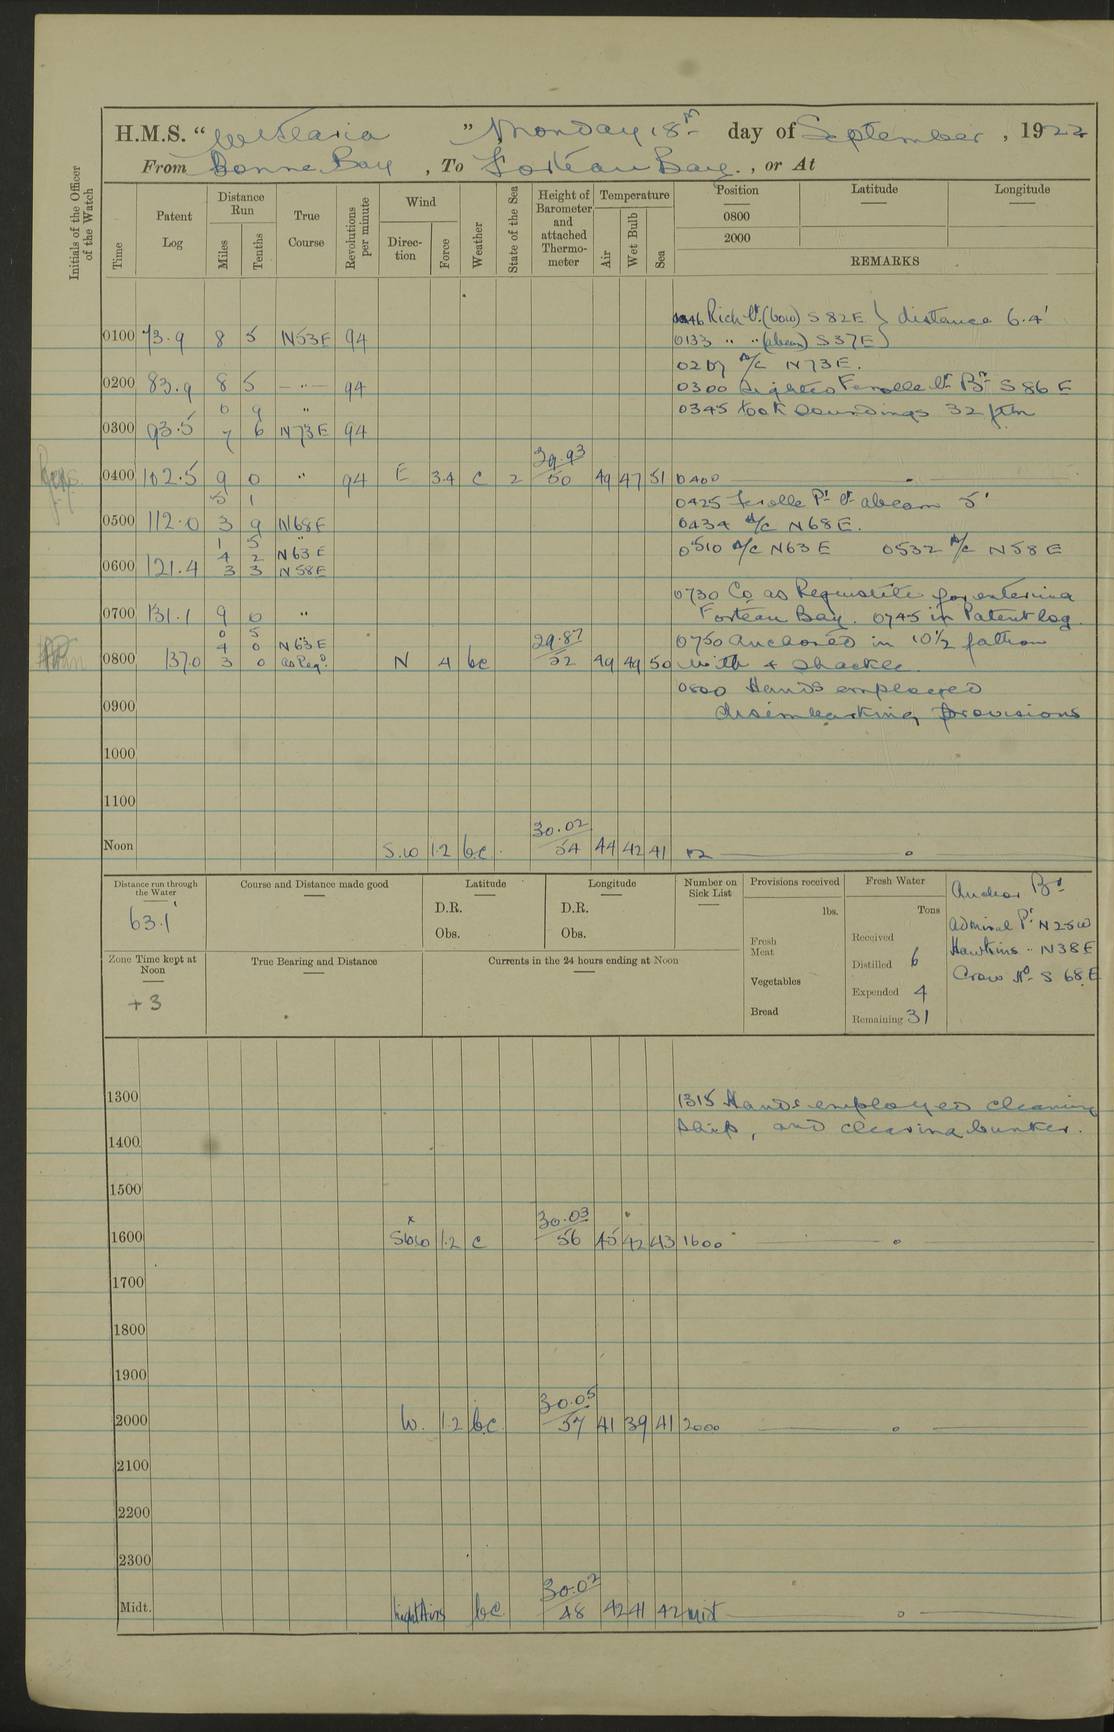 H.M.S. "Wistaria" Monday 18th day of September, 1922
From Bonne Bay, To Forteau Bay, or At
Initials of the Officer of the Watch
Time
Patent Log
Distance Run
Miles
Tenths
True Course
Revolutions per minute
Wind
Direc-tion
Force
Weather
State of the Sea
Height of Barometer and attached Thermo-meter
Temperature
Air
Wet Bulb
Sea
Position
0800
2000
Latitude
Longitude
REMARKS
Rich Lt. (bow) S 82 E } distance 6.4'
0100 73.9 8 5 N53E 94
0133 " " (abeam) S37E }
A/c N73E.
0200 83.9 8 5 — " — 94
0300 Sighted Ferolle Lt. Bg S 86 E
0 9 "
0345 took soundings 32 fthm
0300 93.5 7 6 N73E 94
29.93
0400 102.5 9 0 " 94 E 3.4 c 2 50 49 47 51 0400
5 1
0425 Ferolle Pt Lt abeam 5'
0500 112.0 3 9 N68E
0434 A/c N68E.
1 5 "
0510 A/c N63E 0532 A/c N58E
4 2 N63E
0600 121.4 3 3 N58E
0730 Co as Requisite for entering
0700 131.1 9 0 "
Forteau Bay. 0745 in Patent log.
0 5
4 0 N63E
29.87
0750 Anchored in 10½ fathom
0800 137.0 3 0 as Reqd. N 4 bc 52 49 49 50 with 4 shackles.
0800 Hands employed
0900
disembarking provisions
1000
1100
30.02
Noon S.W 1.2 bc. 54 44 42 41 12
Distance run through the Water
63.1'
Course and Distance made good
Latitude
D.R.
Obs.
Longitude
D.R.
Obs.
Number on Sick List
Provisions received
lbs.
Fresh Meat
Vegetables
Bread
Fresh Water
Tons
Received
Distilled 6
Expended 4
Remaining 31
Anchor Bgs
Admiral Pt N25W
Hawkins " N38E
Crow Hd S 68 E
Zone Time kept at Noon
+3
True Bearing and Distance
Currents in the 24 hours ending at Noon
1300
1315 Hands employed cleaning
ship, and clearing bunker.
1400
1500
30.03
1600 SbW 1.2 c 56 45 42 43 1600
1700
1800
1900
30.05
2000 W. 1.2 b.c. 57 41 39 41 2000
2100
2200
2300
30.02
Midt. Light Airs bc 48 42 41 42 midt